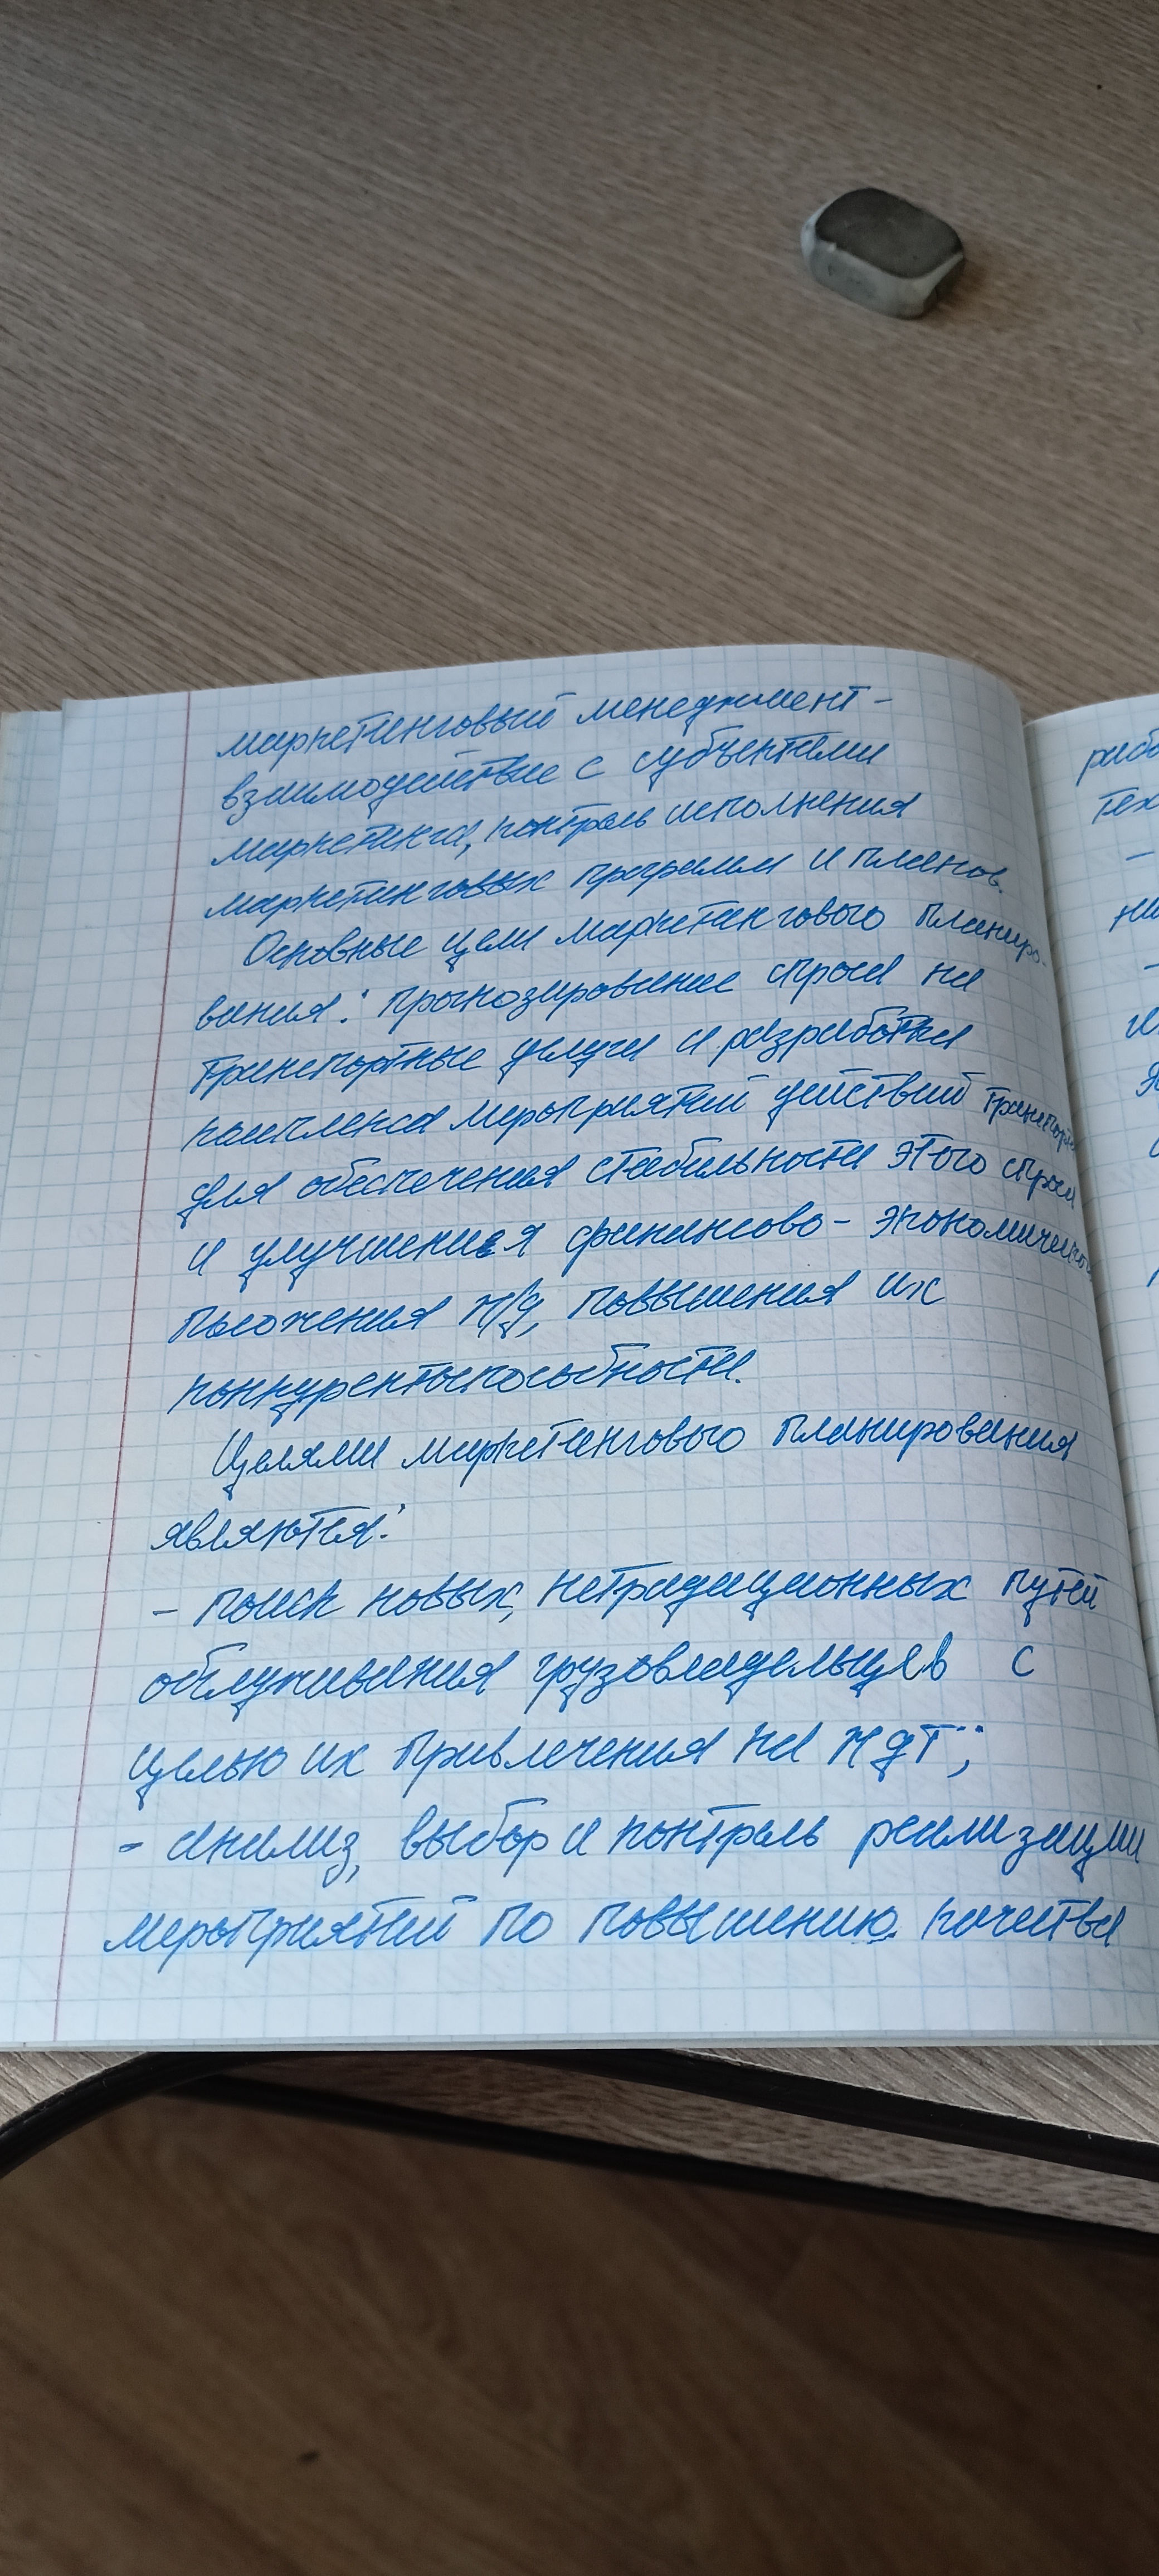 маркетинговый менеджмент -
взаимодействие с субъектами
маркетинга, контроль исполнения
маркетинговых программ и планов.
Основные цели маркетингового планиро-
вания: прогнозирование спроса на
транспортные услуги и разработка
комплекса мероприятий действий
для обеспечения стабильности этого спроса
и улучшения финансово-
положения ж/д, повышения их
конкурентоспособности.
Целями маркетингового планирования
являются:
- поиск новых, нетрадиционных путей
обслуживания грузовладельцев с
целью их привлечения на ждт;
- анализ, выбор и контроль реализации
мероприятий по повышению качества